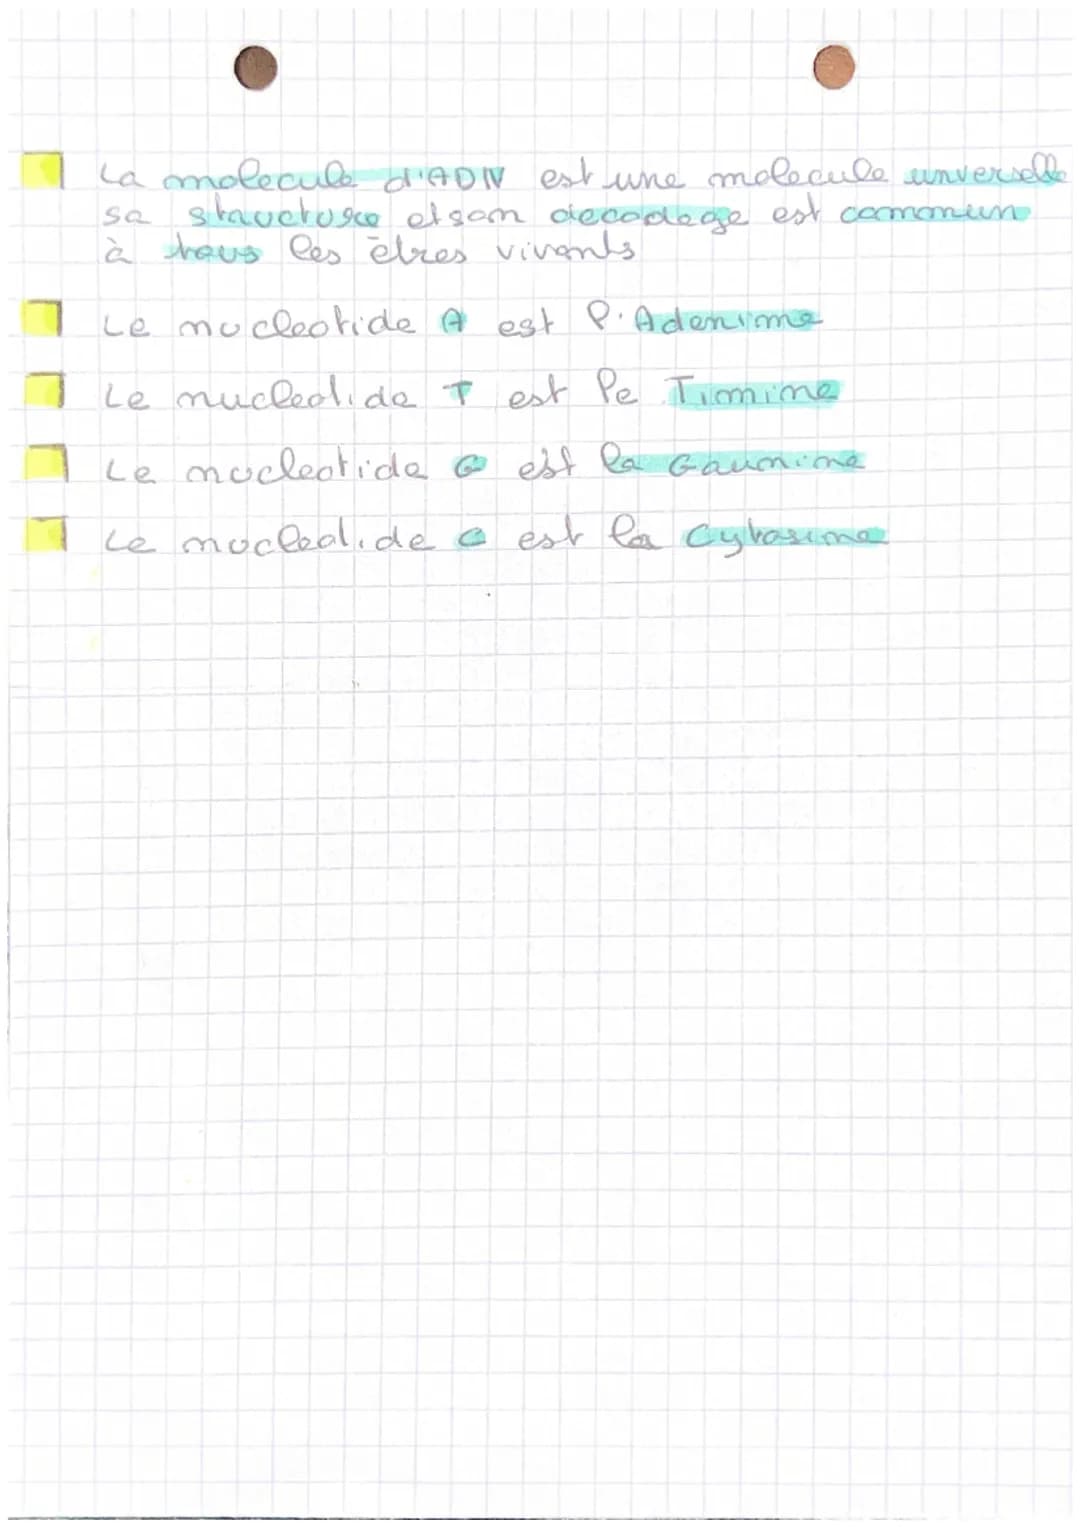 La molecule d'ADN est une molecule unverselle
sa structure et son decodage est commun
à tous les êtres vivants
Le nucleotide A est l'Adenine
Le nucleotide T est le Timine
Le nucleotide G est la Gaunine
Le nucleotide C est la Cytosine